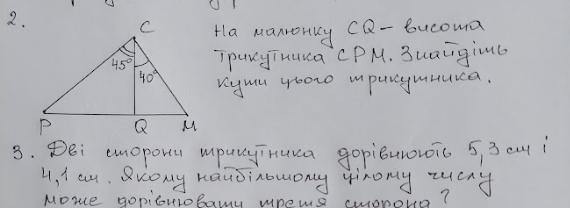 2.
На малюнку CQ - висота
трикутника CPM. Знайдіть
кути цього трикутника.
C
45° 40°
P Q M
3. Дві сторони трикутника дорівнюють 5,3 см і
4,1 см. Якому найбільшому цілому числу
може дорівнювати третя сторона?